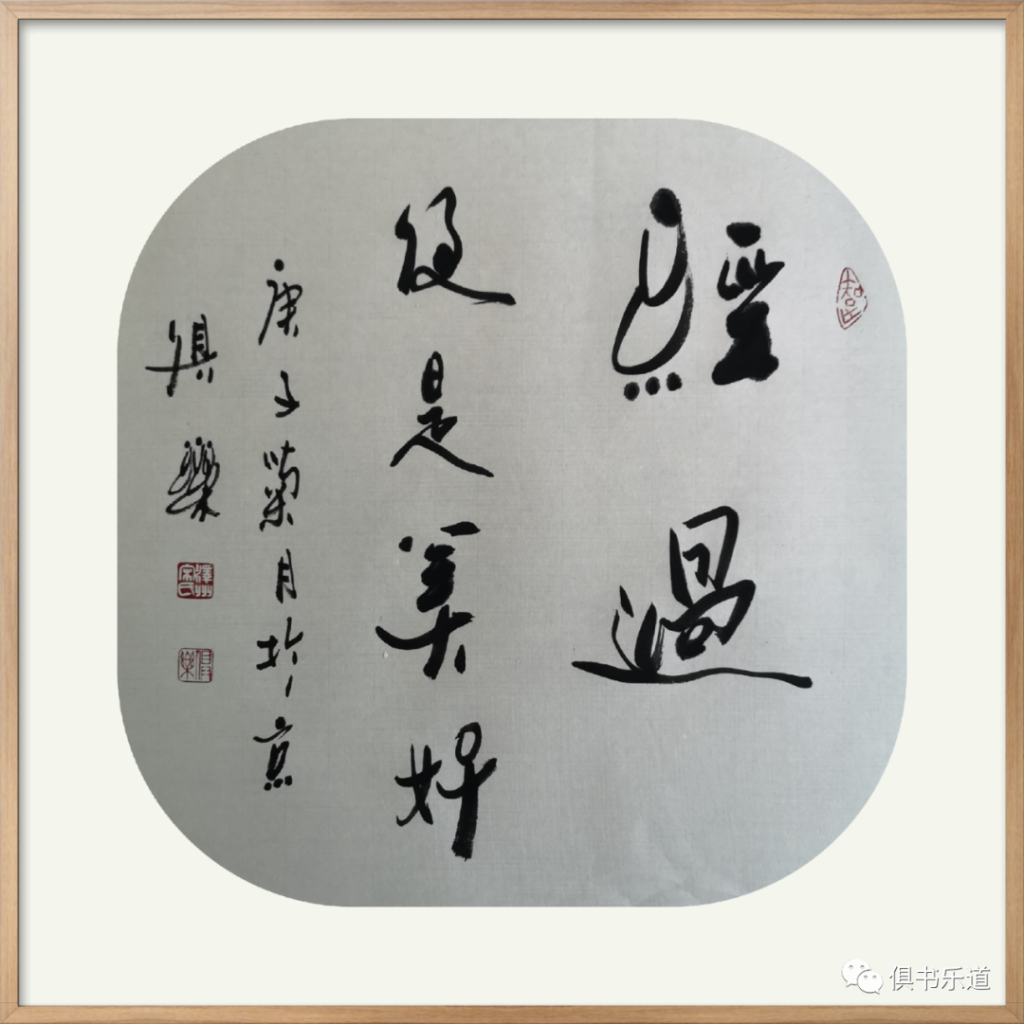 經過
便是美好
庚子菊月於京
俱樂
俱樂
俱书乐道